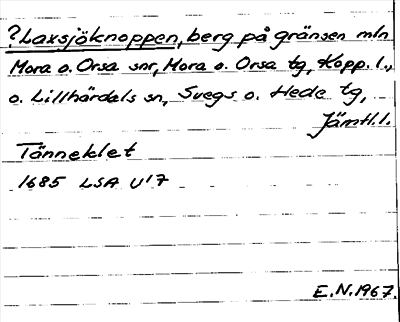 ?Laxsjöknoppen, berg på gränsen mln
Mora o. Orsa snr, Mora o. Orsa tg, Kopp. l.,
o. Lillhärdals sn, Svegs o. Hede tg,
Jämtl. l.
Tänneklet
1685 LSA U'7
E.N. 1967.